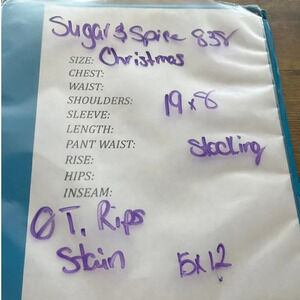 Sugar & Spice 838
SIZE: Christmas
CHEST:
WAIST:
SHOULDERS: 19 x 8
SLEEVE:
LENGTH:
PANT WAIST: Stocking
RISE:
HIPS:
INSEAM:
0 T. Rips
Stain 15x12